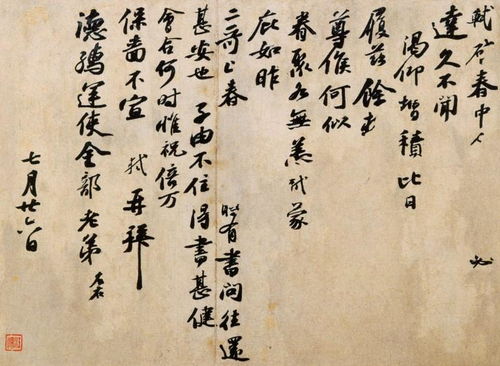 軾啓春中 必
達久不聞
渴仰增積比日
履茲餘
尊候何似
眷聚各無恙軾蒙
庇如昨
二哥上春 有書問往還
甚安也子由不住得書甚健
會合何時惟祝倍万
保嗇不宣軾再拜
德孺運使金部老弟
七月廿六日